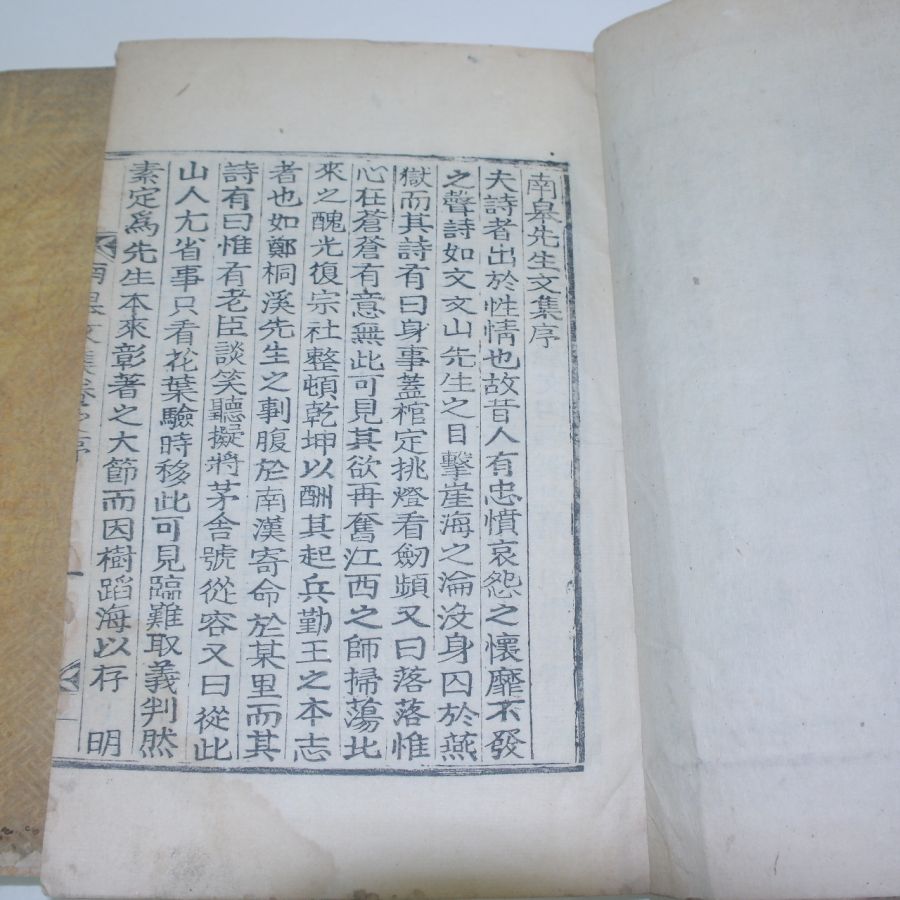 南皐先生文集序
夫詩者出於性情也故昔人有忠憤哀怨之懷靡不發
之聲詩如文文山先生之目擊崖海之淪沒身囚於燕
獄而其詩有曰身事蓋棺定挑燈看劒頻又曰落落惟
心在蒼蒼有意無此可見其欲再奮江西之師掃蕩北
來之醜光復宗社整頓乾坤以酬其起兵勤王之本志
者也如鄭桐溪先生之剚腹於南漢寄命於某里而其
詩有曰惟有老臣談笑聽擬將茅舍號從容又曰從此
山人尢省事只看花葉驗時移此可見臨難取義判然
素定爲先生本來彰著之大節而因樹蹈海以存 明
南皐文集卷之序
一